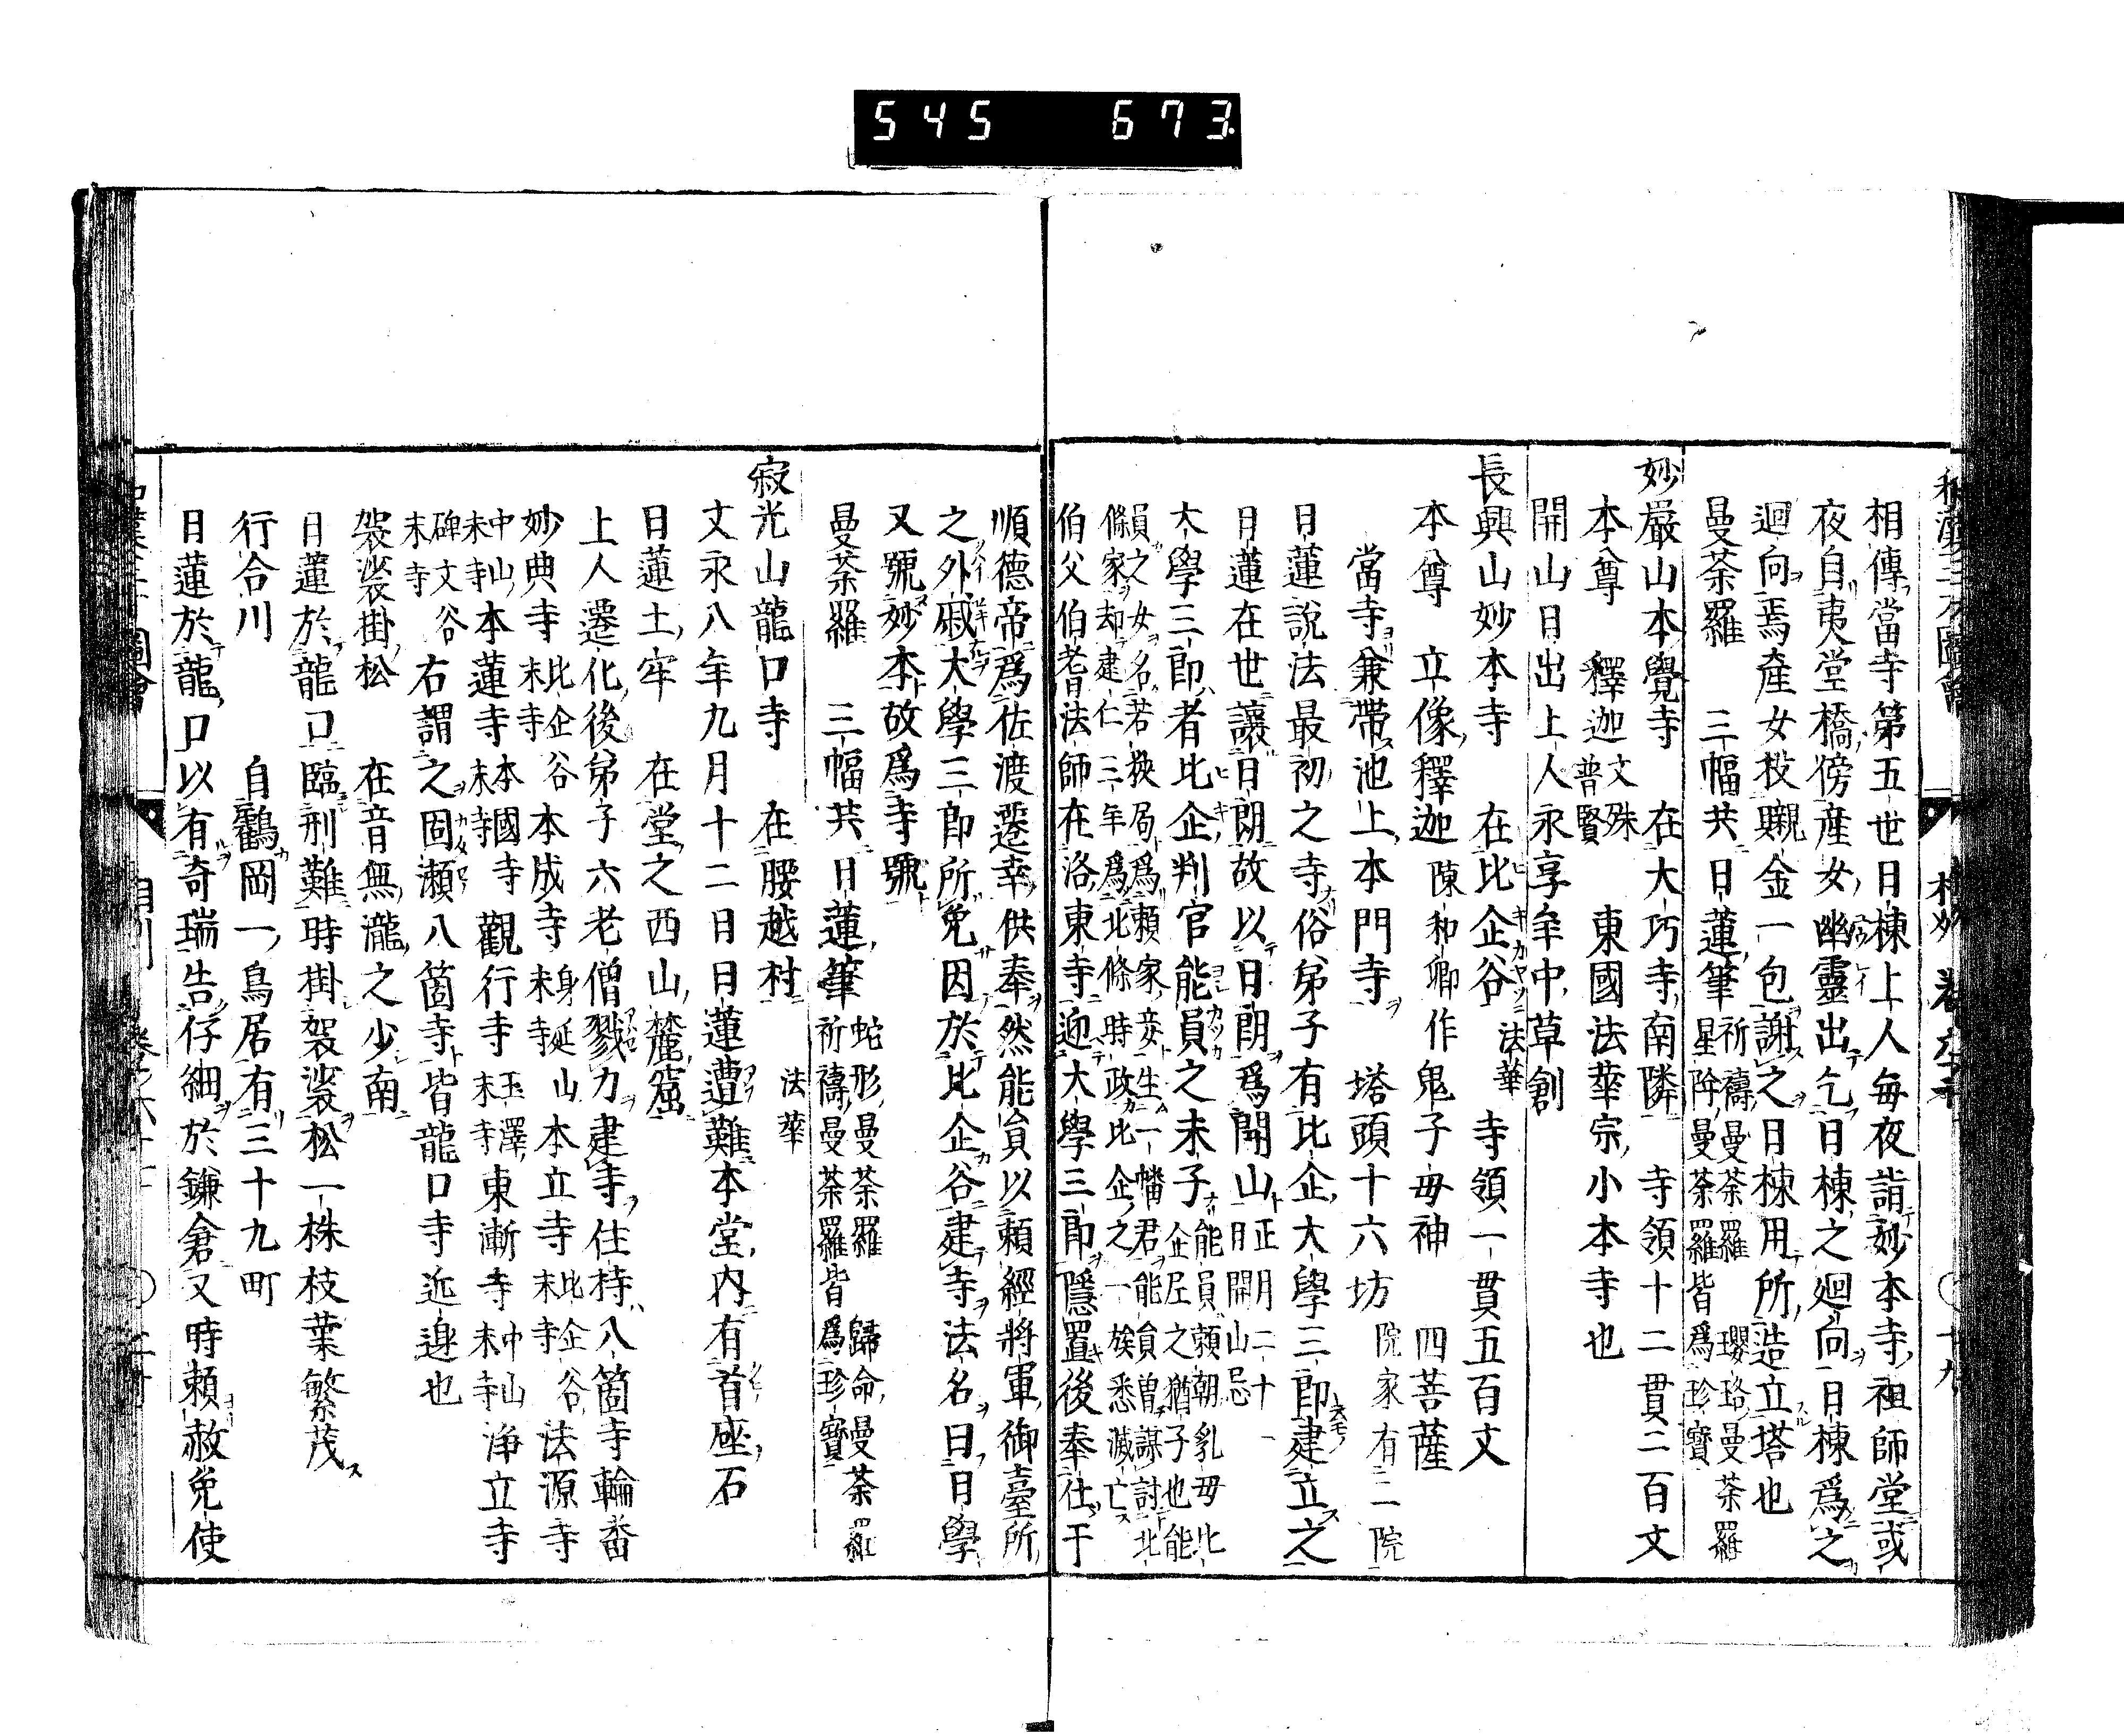 545 673.
相傳當寺第五世日棟上人每夜詣妙本寺祖師堂或
夜自夷堂橋傍産女幽靈出乞日棟之廻向日棟爲之
迴向焉産女投䞋金一包謝之日棟用所造立塔也
曼荼羅 三幅共日蓮筆 祈禱曼荼羅 瓔珞曼荼羅
星降曼荼羅皆爲珍寶
妙嚴山本覺寺 在大巧寺南隣 寺領十二貫二百文
本尊 釋迦 文殊 普賢 東國法華宗小本寺也
開山日出上人永享年中草創
長興山妙本寺 在比企谷 法華 寺領一貫五百文
本尊 立像釋迦 陳和卿作 鬼子母神 四菩薩
當寺兼帶池上本門寺 塔頭十六坊 院家有二院
日蓮說法最初之寺俗弟子有比企大學三郎建立之
日蓮在世讓日朗故以日朗爲開山 正月二十一日開山忌
大學三郎者比企判官能員之末子 能員賴朝乳母比
企尼之猶子也能
員之女名若狹局爲賴家妾生一幡君能員曽謀討北
條家却建仁三年爲北條時政比企之一族悉滅亡
伯父伯耆法師在洛東寺迎大學三郎隱置後奉仕于
順德帝爲佐渡遷幸供奉然能員以賴經將軍御臺所
之外戚大學三郎所免因於比企谷建寺法名曰日學
又號妙本故爲寺號
曼荼羅 三幅共日蓮筆 蛇形曼荼羅 歸命曼荼羅
祈禱曼荼羅皆爲珍寶
寂光山龍口寺 在腰越村 法華
文永八年九月十二日日蓮遭難本堂內有首座石
日蓮土牢 在堂之西山麓窟
上人遷化後弟子六老僧戮力建寺住持八箇寺輪番
妙典寺 比企谷末寺 本成寺 身延山末寺 本立寺 比企谷末寺 法源寺
中山末寺 本蓮寺 本國寺末寺 觀行寺 玉澤末寺 東漸寺 中山末寺 淨立寺
碑文谷末寺 右謂之固瀨八箇寺皆龍口寺近邊也
袈裟掛松 在音無瀧之少南
日蓮於龍口臨刑難時掛袈裟松一株枝葉繁茂
行合川 自鸖岡一鳥居有三十九町
日蓮於龍口以有奇瑞告仔細於鎌倉又時賴赦免使